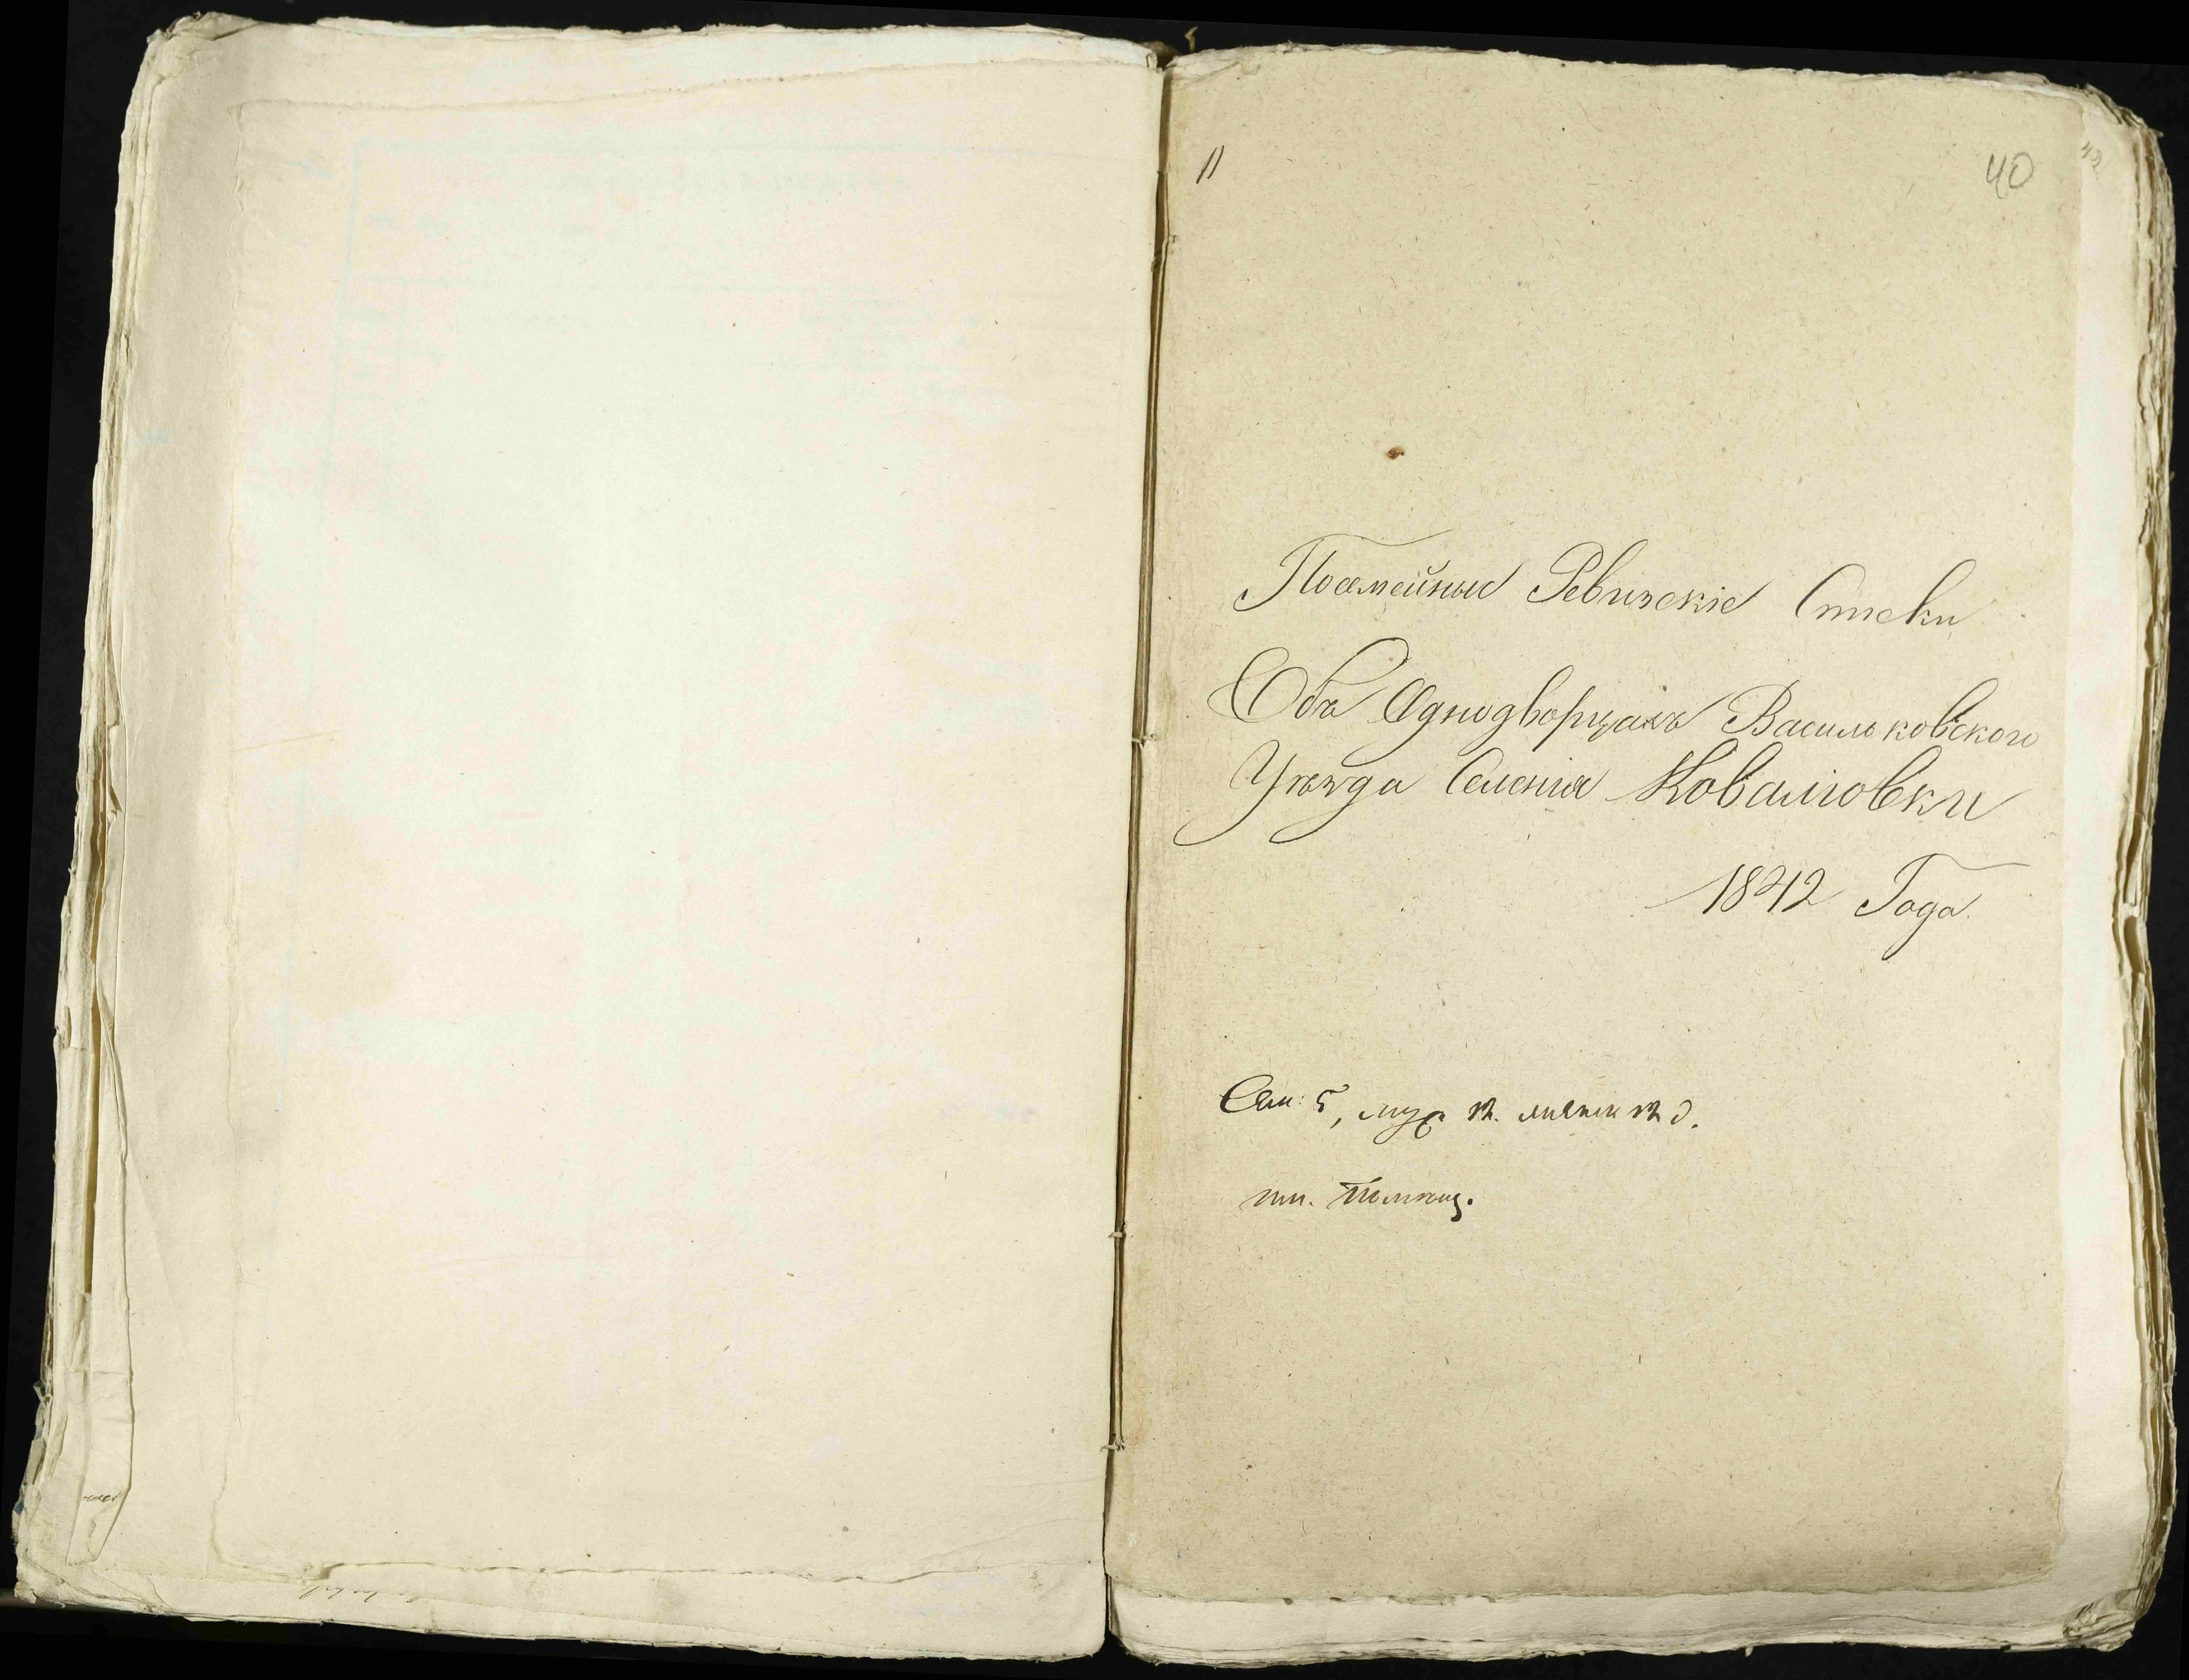 11
40
42
Посемейныи Ревизскіе Списки
Объ Однодворцахъ Васильковского
Уѣзда Селенія Ковалювки
1842 Года.
Сем: 5, муж